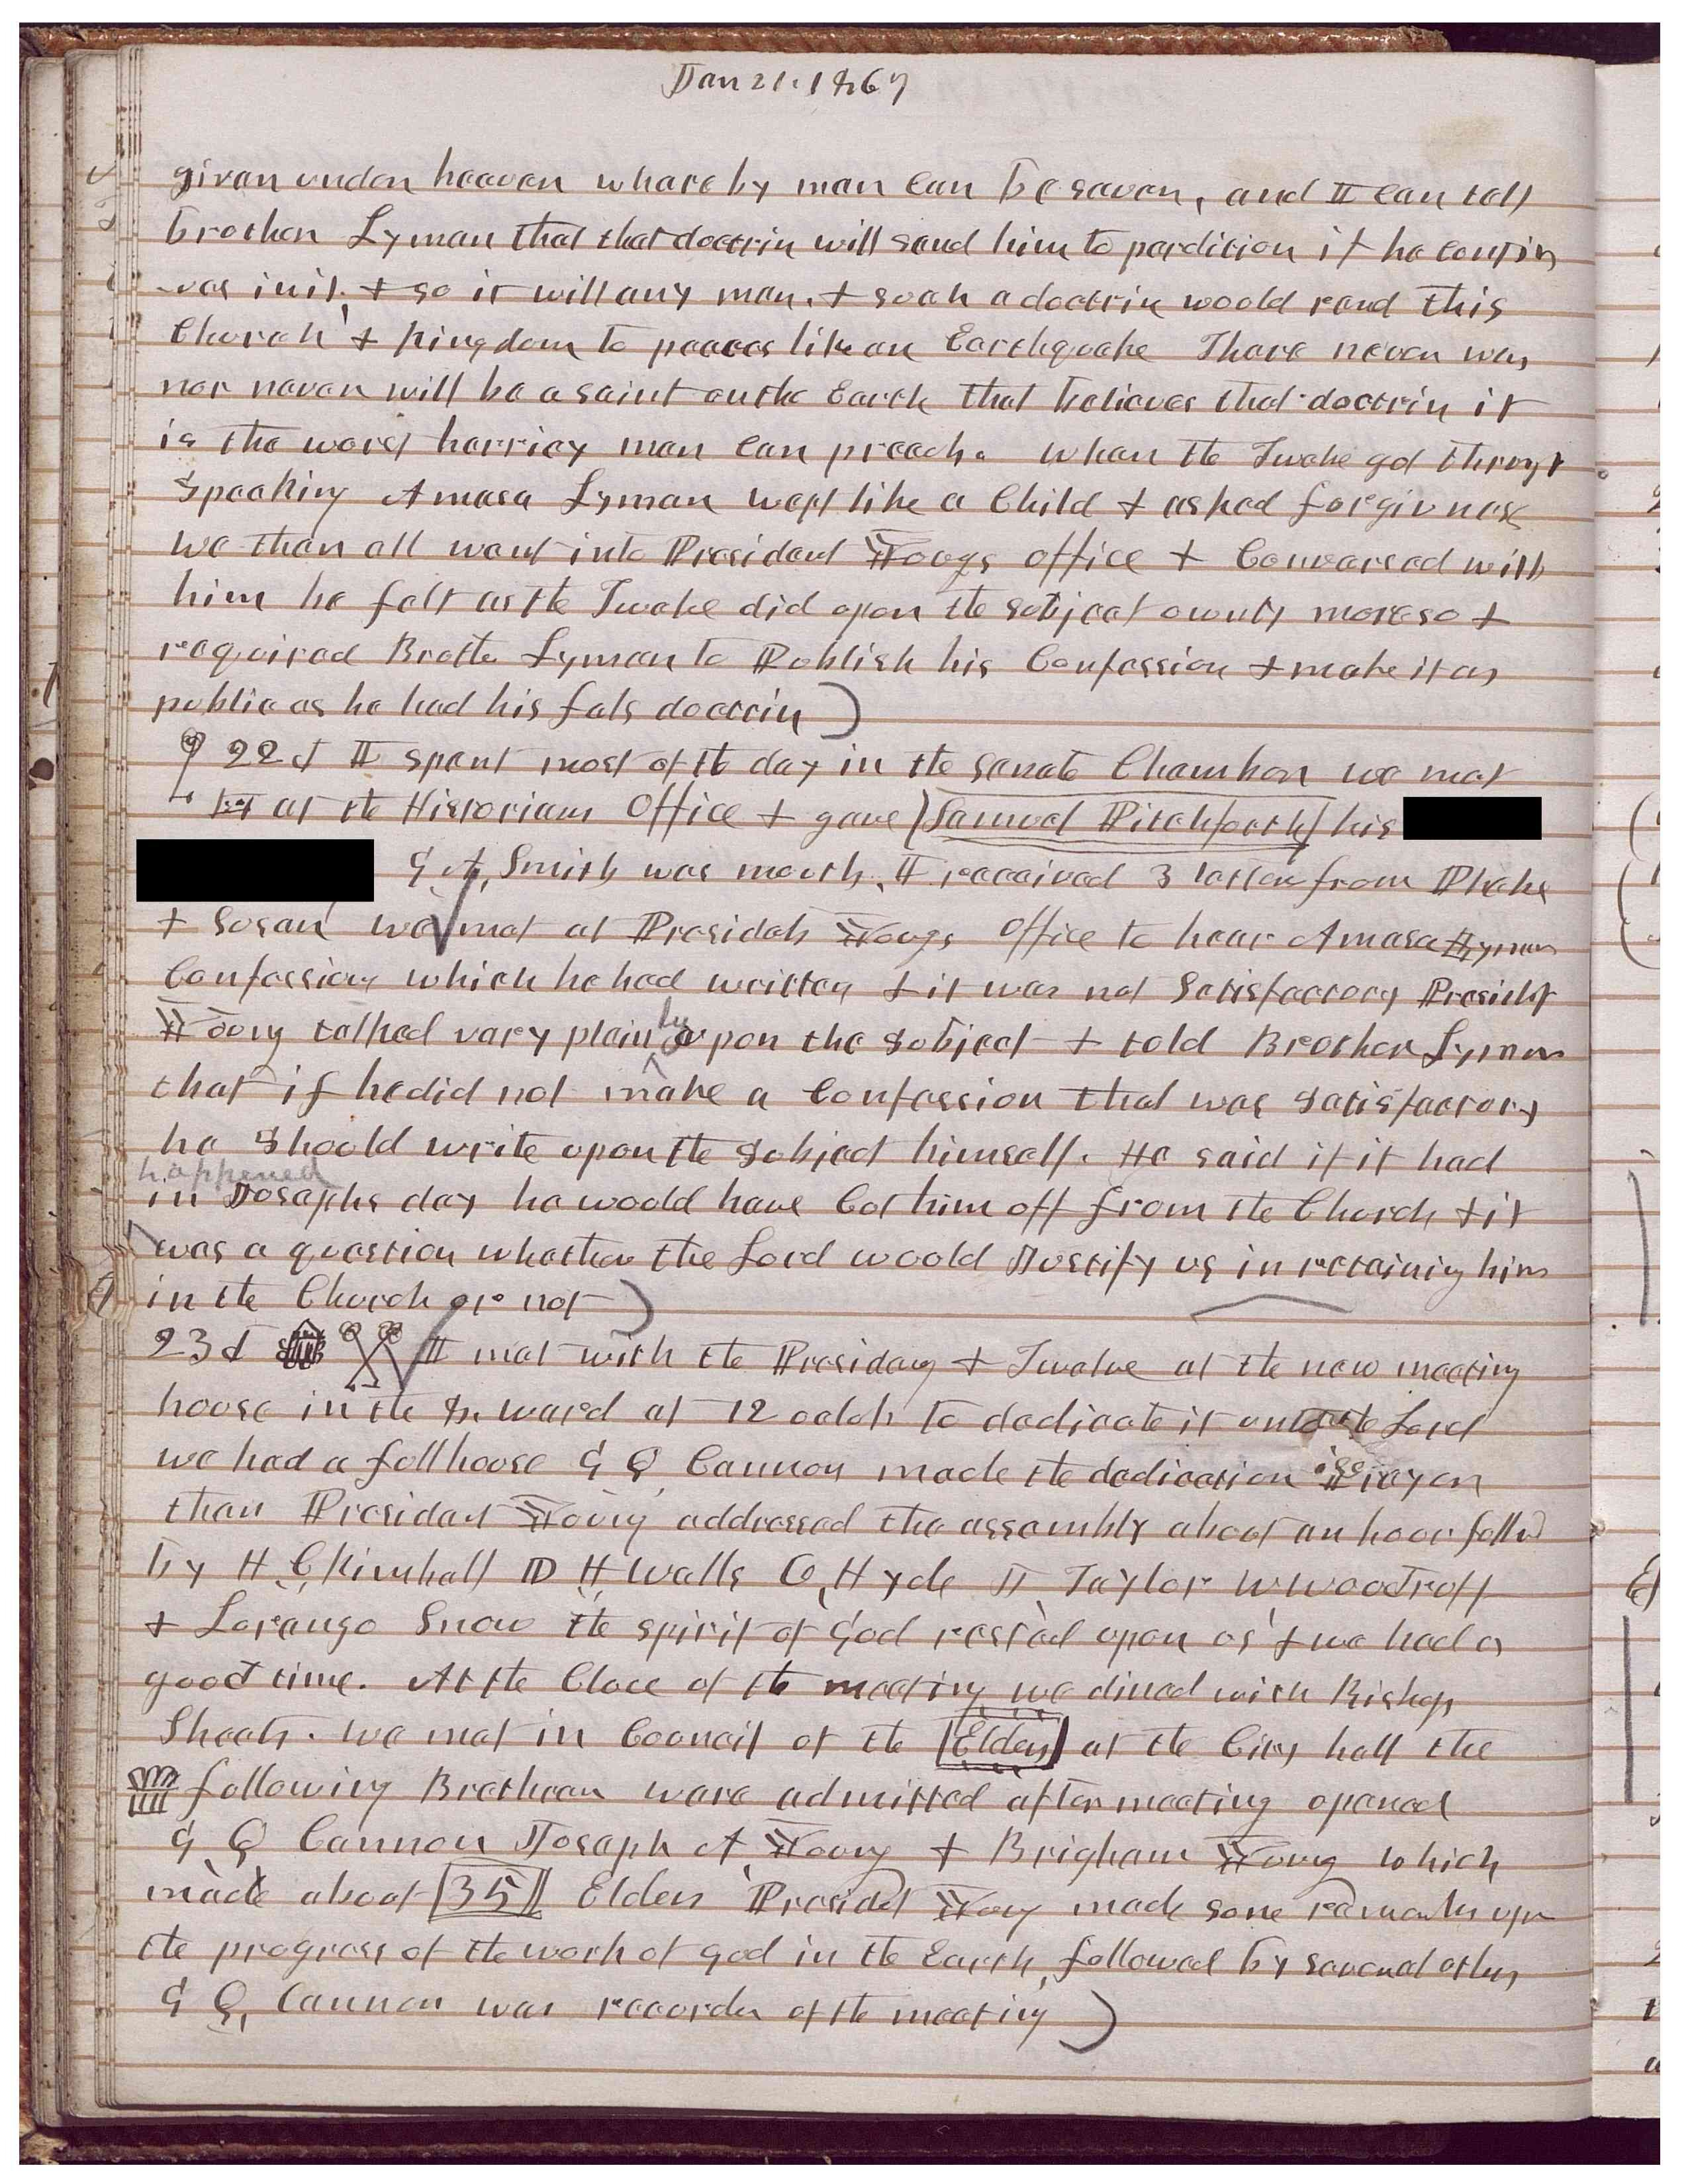 Jan 21. 1867
given under heaven whareby man can be saven, and I can tell
brother Lyman that that doctrin will send him to perdition if he contin
-ues in it, + so it will any man. + such a doctrin would rend this
Church + Kingdom to peaces like an Earthquake There never was
nor never will be a saint on the Earth that believes that doctrin it
is the worst herricy man can preach. When the Twelve got through
Speaking Amasa Lyman wept like a Child + asked forgivness
we then all went into President Youngs office + Conversed with
him he felt as the Twelve did upon the subject ownly more so +
required Brother Lyman to Publish his Confession + make it as
public as he had his fals doctrin)
22d I spent most of the day in the Senate Chamber we met
at the Historians Office + gave Samuel Pitchforth his
G A, Smith was mouth. I received 3 letters from Phebe
+ Susan we met at President Youngs Office to hear Amasa Lyman
Confession which he had written + it was not Satisfactory President
Young talked very plainly upon the subject + told Brother Lyman
that if he did not make a Confession that was satisfactory
he should write upon the subject himself. He said if it had
happened
in Josephs day he would have Cut him off from the Church + it
was a question whether the Lord would Justify us in retaining him
in the Church or not)
23d I met with the Presidency + Twelve at the new meeting
house in the 8. ward at 12 oclok to dedicate it unto the Lord
we had a full house G Q Cannon made the dedication Prayer
then President Young addressed the assembly about an hour follwd
by H C Kimball D H Wells O, Hyde J Taylor W Woodruff
+ Lorenzo Snow the spirit of God rested upon us + we had a
good time. At the Close of the meeting we dined with Bishop
Sheets. We met in Council of the Elders at the City hall the
following Brethren ware admitted after meeting opened
G Q Cannon Joseph A Young + Brigham Young which
made about 35 Elders Presidet Young made some remarks upon
the progress of the work of God in the Earth, followed by several others
G Q, Cannon was recorder of the meeting)